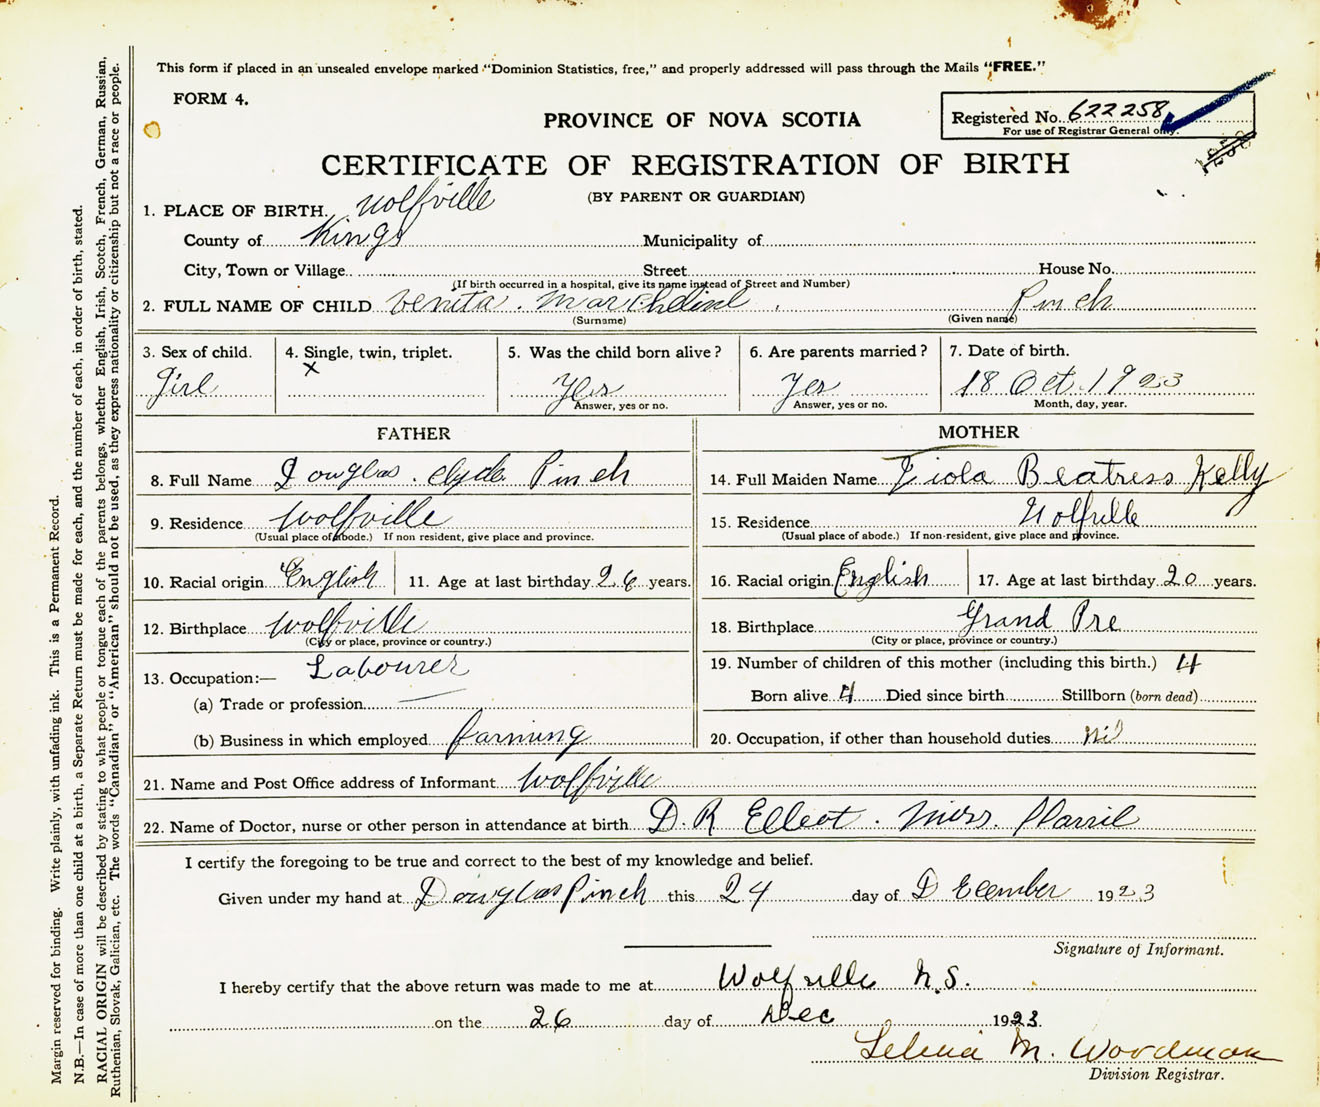 This form if placed in an unsealed envelope marked "Dominion Statistics, free," and properly addressed will pass through the Mails "FREE."
FORM 4.
Registered No. 622258
For use of Registrar General only.
PROVINCE OF NOVA SCOTIA
CERTIFICATE OF REGISTRATION OF BIRTH
(BY PARENT OR GUARDIAN)
1. PLACE OF BIRTH. Wolfville
County of Kings Municipality of
City, Town or Village Street House No.
(If birth occurred in a hospital, give its name instead of Street and Number)
2. FULL NAME OF CHILD Venita Pinch
(Surname) (Given name)
3. Sex of child. 4. Single, twin, triplet. 5. Was the child born alive? 6. Are parents married? 7. Date of birth.
Girl x Yes Yes 18 Oct. 1923
Answer, yes or no. Answer, yes or no. Month, day, year.
FATHER MOTHER
8. Full Name Douglas Clyde Pinch 14. Full Maiden Name Viola Beatress Kelly
9. Residence Wolfville 15. Residence Wolfville
(Usual place of abode.) If non resident, give place and province. (Usual place of abode.) If non-resident, give place and province.
10. Racial origin English 11. Age at last birthday 26 years. 16. Racial origin English 17. Age at last birthday 20 years.
12. Birthplace Wolfville 18. Birthplace Grand Pre
(City or place, province or country.) (City or place, province or country.)
13. Occupation:— Labourer 19. Number of children of this mother (including this birth.) 4
(a) Trade or profession — Born alive 4 Died since birth Stillborn (born dead)
(b) Business in which employed farming 20. Occupation, if other than household duties Nil
21. Name and Post Office address of Informant Wolfville
22. Name of Doctor, nurse or other person in attendance at birth D. R Elleot. Mirs.
I certify the foregoing to be true and correct to the best of my knowledge and belief.
Given under my hand at Douglas Pinch this 24 day of DEcember 1923
Signature of Informant.
I hereby certify that the above return was made to me at Wolfville N.S.
on the 26 day of Dec 1923.
M. Woodman
Division Registrar.
Margin reserved for binding. Write plainly, with unfading ink. This is a Permanent Record.
N.B.—In case of more than one child at a birth, a Separate Return must be made for each, and the number of each, in order of birth, stated.
RACIAL ORIGIN will be described by stating to what people or tongue each of the parents belongs, whether English, Irish, Scotch, French, German, Russian,
Ruthenian, Slovak, Galician, etc. The words "Canadian" or "American" should not be used, as they express nationality or citizenship but not a race or people.